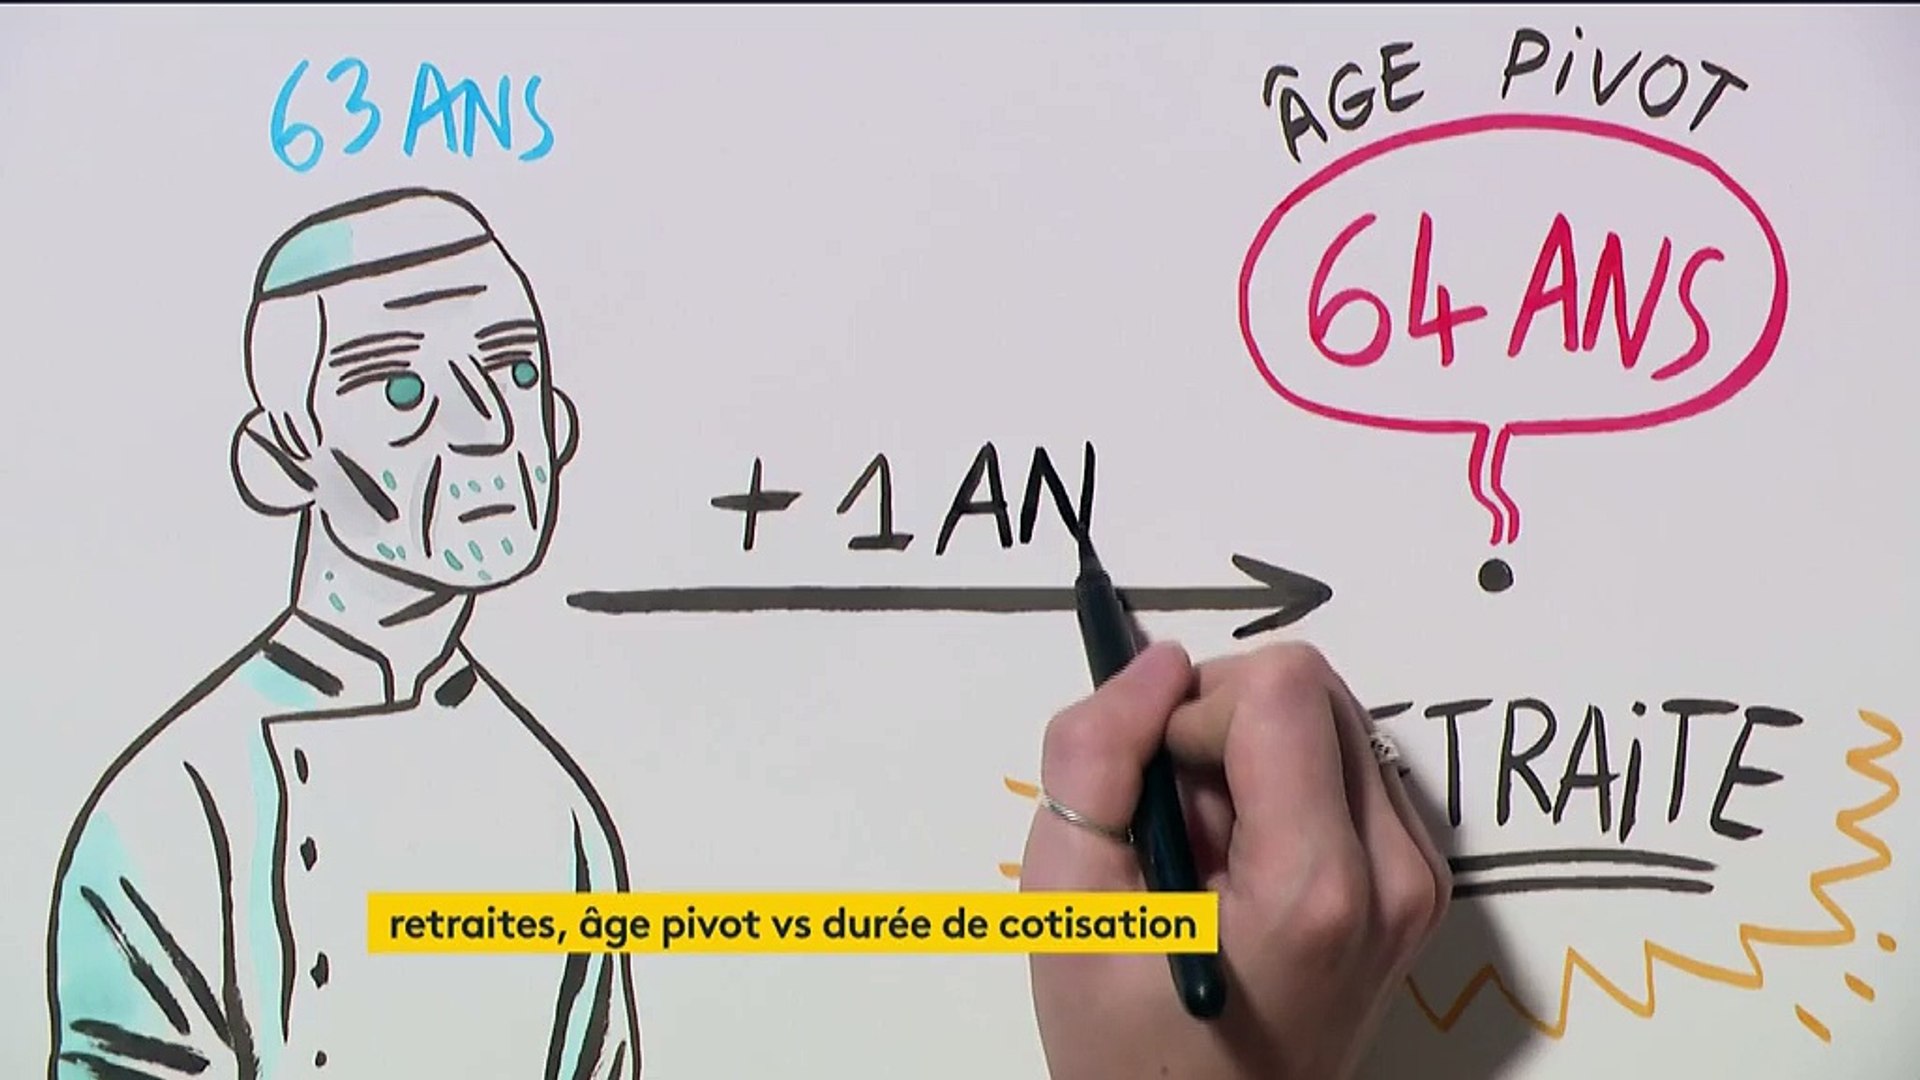 63 ANS
ÂGE PiVOT
64 ANS
+ 1 AN
ETRAiTE
retraites, âge pivot vs durée de cotisation